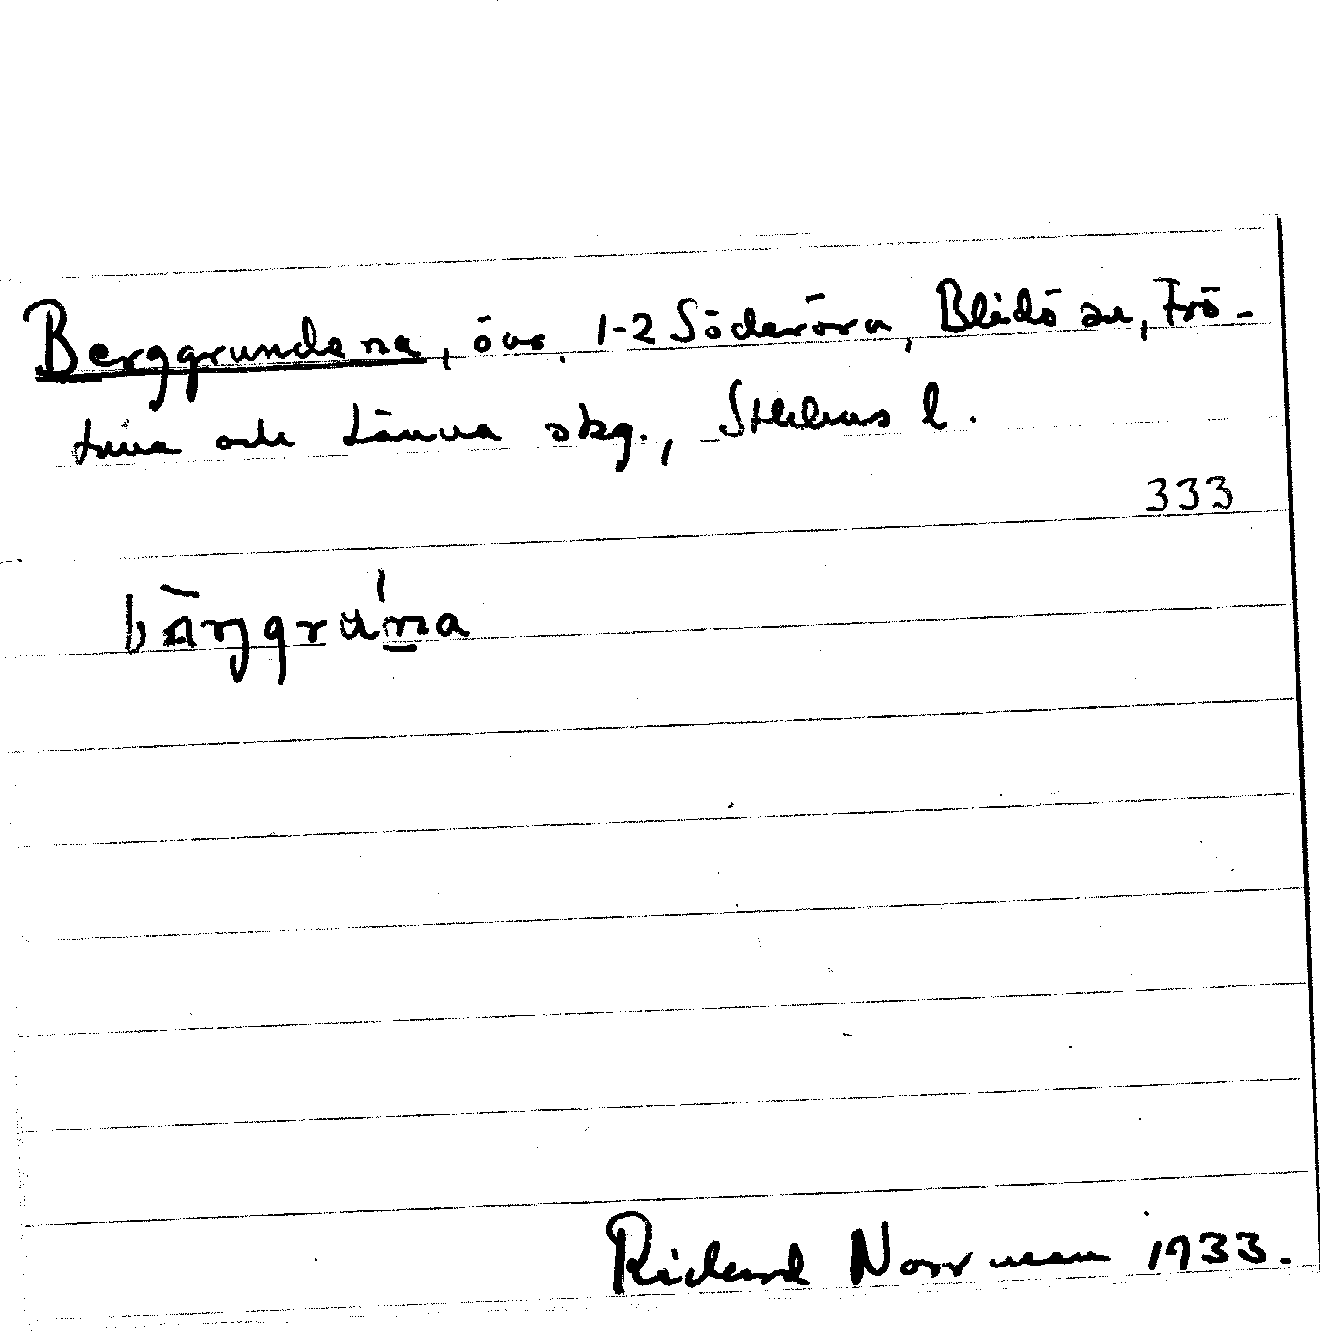 Berggrundena, öar, 1-2 Söderöra, Blidö sn, Frö-
tuna och Länna skg., Sthlms l.
333
bärjgruna
Rickard Norrman 1933.